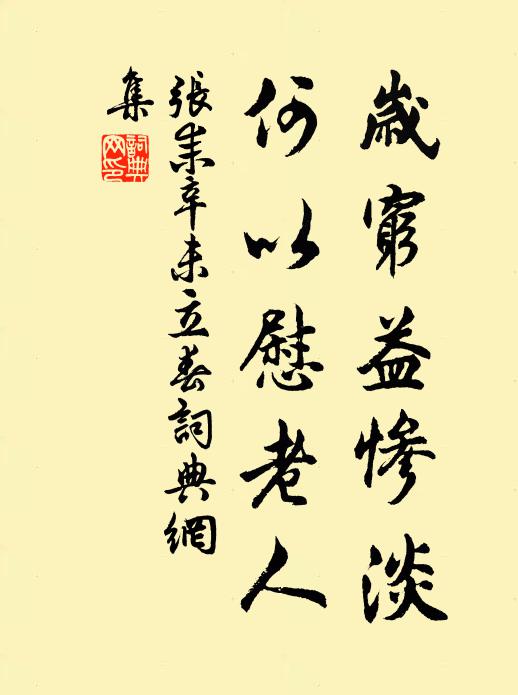 歲窮益慘淡
何以慰老人
張耒辛未立春詞典網
集
詞典
网印